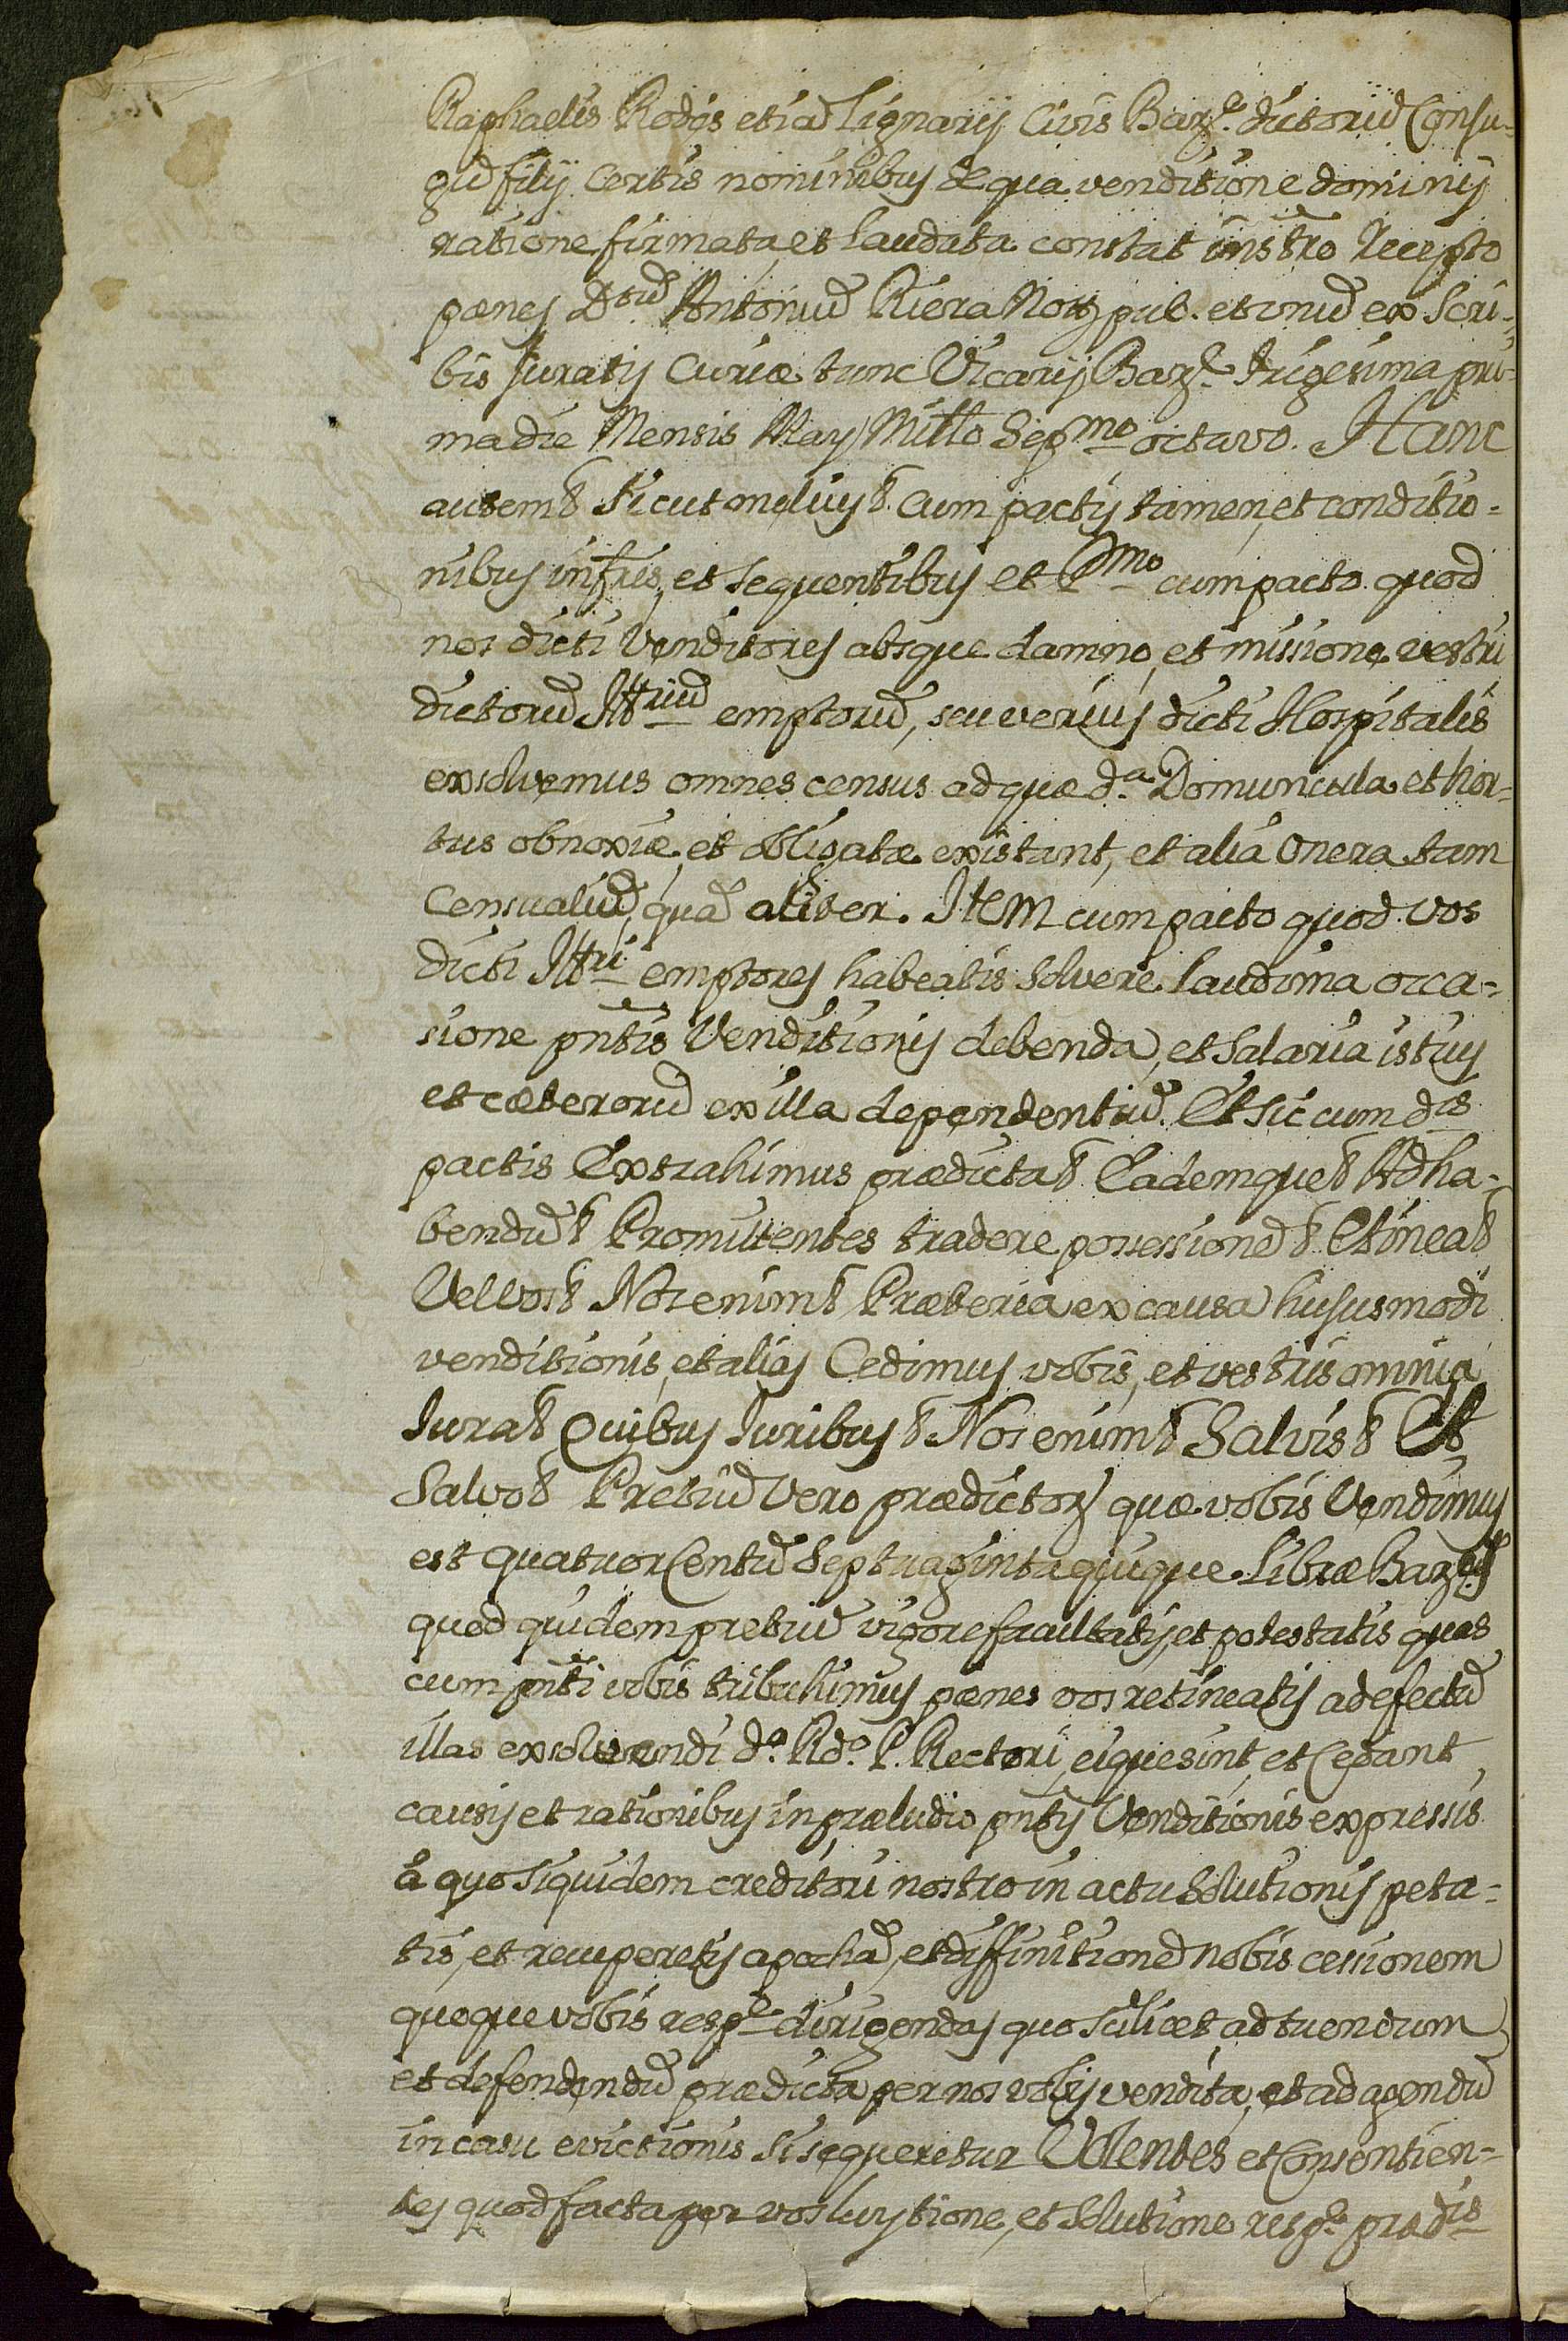 Raphaelis Rodós etiā Lignarij Civis Barᵉ. dictorū Conju-
gū filij certis nominibus de qua venditione dominij
ratione firmata, et laudata constat instro recepto
pænes Dᵗᵘᵐ Antoniū Riera Notᵐ pub. et unū ex Scri-
bis Juratis Curiæ tunc Vicarij Barᵉ. trigesima pri-
ma die Mensis Maij Millo Sepᵐᵒ octavo. Hanc
autem& sicut melius&. Cum pactis tamen, et conditio-
nibus infris, et sequentibus et Pᵐᵒ cum pacto quod
nos dicti Venditores absque damno, et missione vestri
dictorū Illʳⁱᵘᵐ emptorū, seu verius dicti Hospitalis
exsolvemus omnes census ad quæ dᵃ. Domuncula et hor-
tus obnoxiæ, et obligatæ existant, et alia onera tam
Censualiū, quā aliter. Item cum pacto quod vos
dicti Illʳⁱ emptores habeatis solvere laudimia occa-
sione pntis Venditionis debenda, et salaria istius
et cæterorū ex illa dependentiū. Et sic cum dᶦˢ
pactis Extrahimus prædicta& Eademque& Ad ha-
bendū& Promittentes tradere possessionē& Et inea&
Vel vos& Nos enim& Præterea ex causa hujusmodi
venditionis, et alias Cedimus vobis, et vestris omnia
Jura& Quibus Juribus& Nos enim& Salvis& Et
Salvo& Pretiū Vero prædictorᵐ quæ vobis Vendimus
est quatuor Centū Septuaginta quinque Libræ Barᵉˢ
quod quidem pretiū vigore facultatis, et potestatis quas
cum pnti vobis tribuhimus pænes vos retineatis ad efectū
illas exsolvendi dᵒ. Rdᵒ. P. Rectori, eique sint, et cedant
causis et rationibus in præludio pntis Venditionis expressis
à quo siquidem creditori nostro in actu solutionis peta-
tis, et recuperetis apochā, et diffinitionē nobis cessionem
quoque vobis respᵉ dirigendas quo scilicet ad tuendum
et defendendū prædicta per nos vobis vendita, et ad agendū
in casu evictionis si sequeretur Volentes et Consentien-
tes quod facta per vos luytione, et solutione respᵉ prædᶦˢ